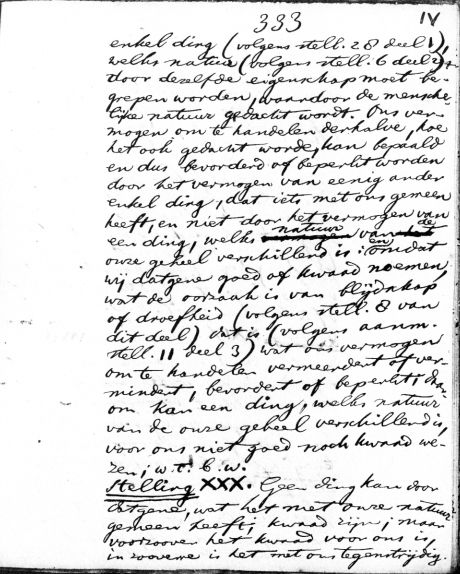 333
IV
enkel ding (volgens stell. 28 deel 1),
welks natuur (volgens stell. 6 deel 2)
door dezelfde eigenschap moet be-
grepen worden, waardoor de mensche-
lijke natuur gedacht wordt. Ons ver-
mogen om te handelen derhalve, hoe
het ook gedacht worde, kan bepaald
en dus bevorderd of beperkt worden
door het vermogen van eenig ander
enkel ding, dat iets met ons gemeen
heeft, en niet door het vermogen van
een ding, welks natuur van de
onze geheel verschillend is; en omdat
wij datgene goed of kwaad noemen,
wat de oorzaak is van blijdschap
of droefheid (volgens stell. 8 van
dit deel) dat is (volgens aanm.
stell. 11 deel 3) wat ons vermogen
om te handelen vermeerdert of ver-
mindert, bevordert of beperkt, daar-
om kan een ding, welks natuur
van de onze geheel verschillend is,
voor ons niet goed noch kwaad we-
zen; w. t. b. w.
Stelling XXX. Geen ding kan door
datgene, wat het met onze natuur
gemeen heeft, kwaad zijn; maar
voorzoover het kwaad voor ons is,
in zooverre is het met ons tegenstrijdig.